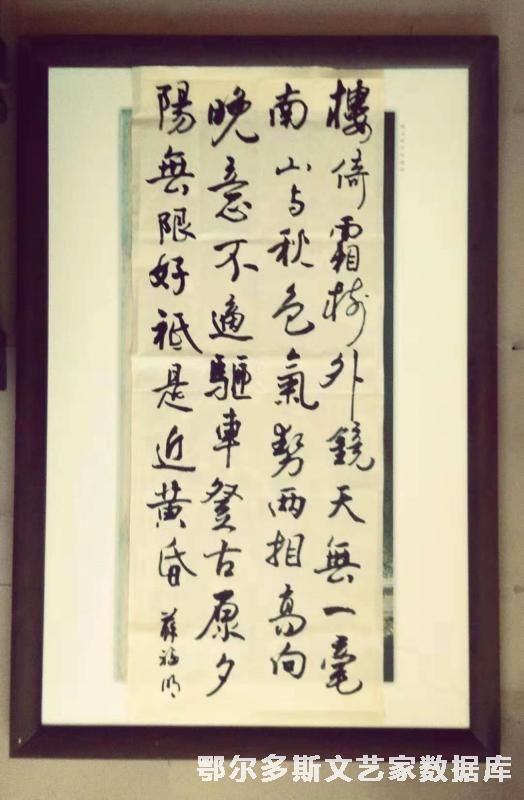 樓倚霜樹外鏡天無一毫
南山与秋色氣勢兩相高向
晚意不適驅車登古原夕
陽無限好祗是近黄昏
薛福明
鄂尔多斯文艺家数据库